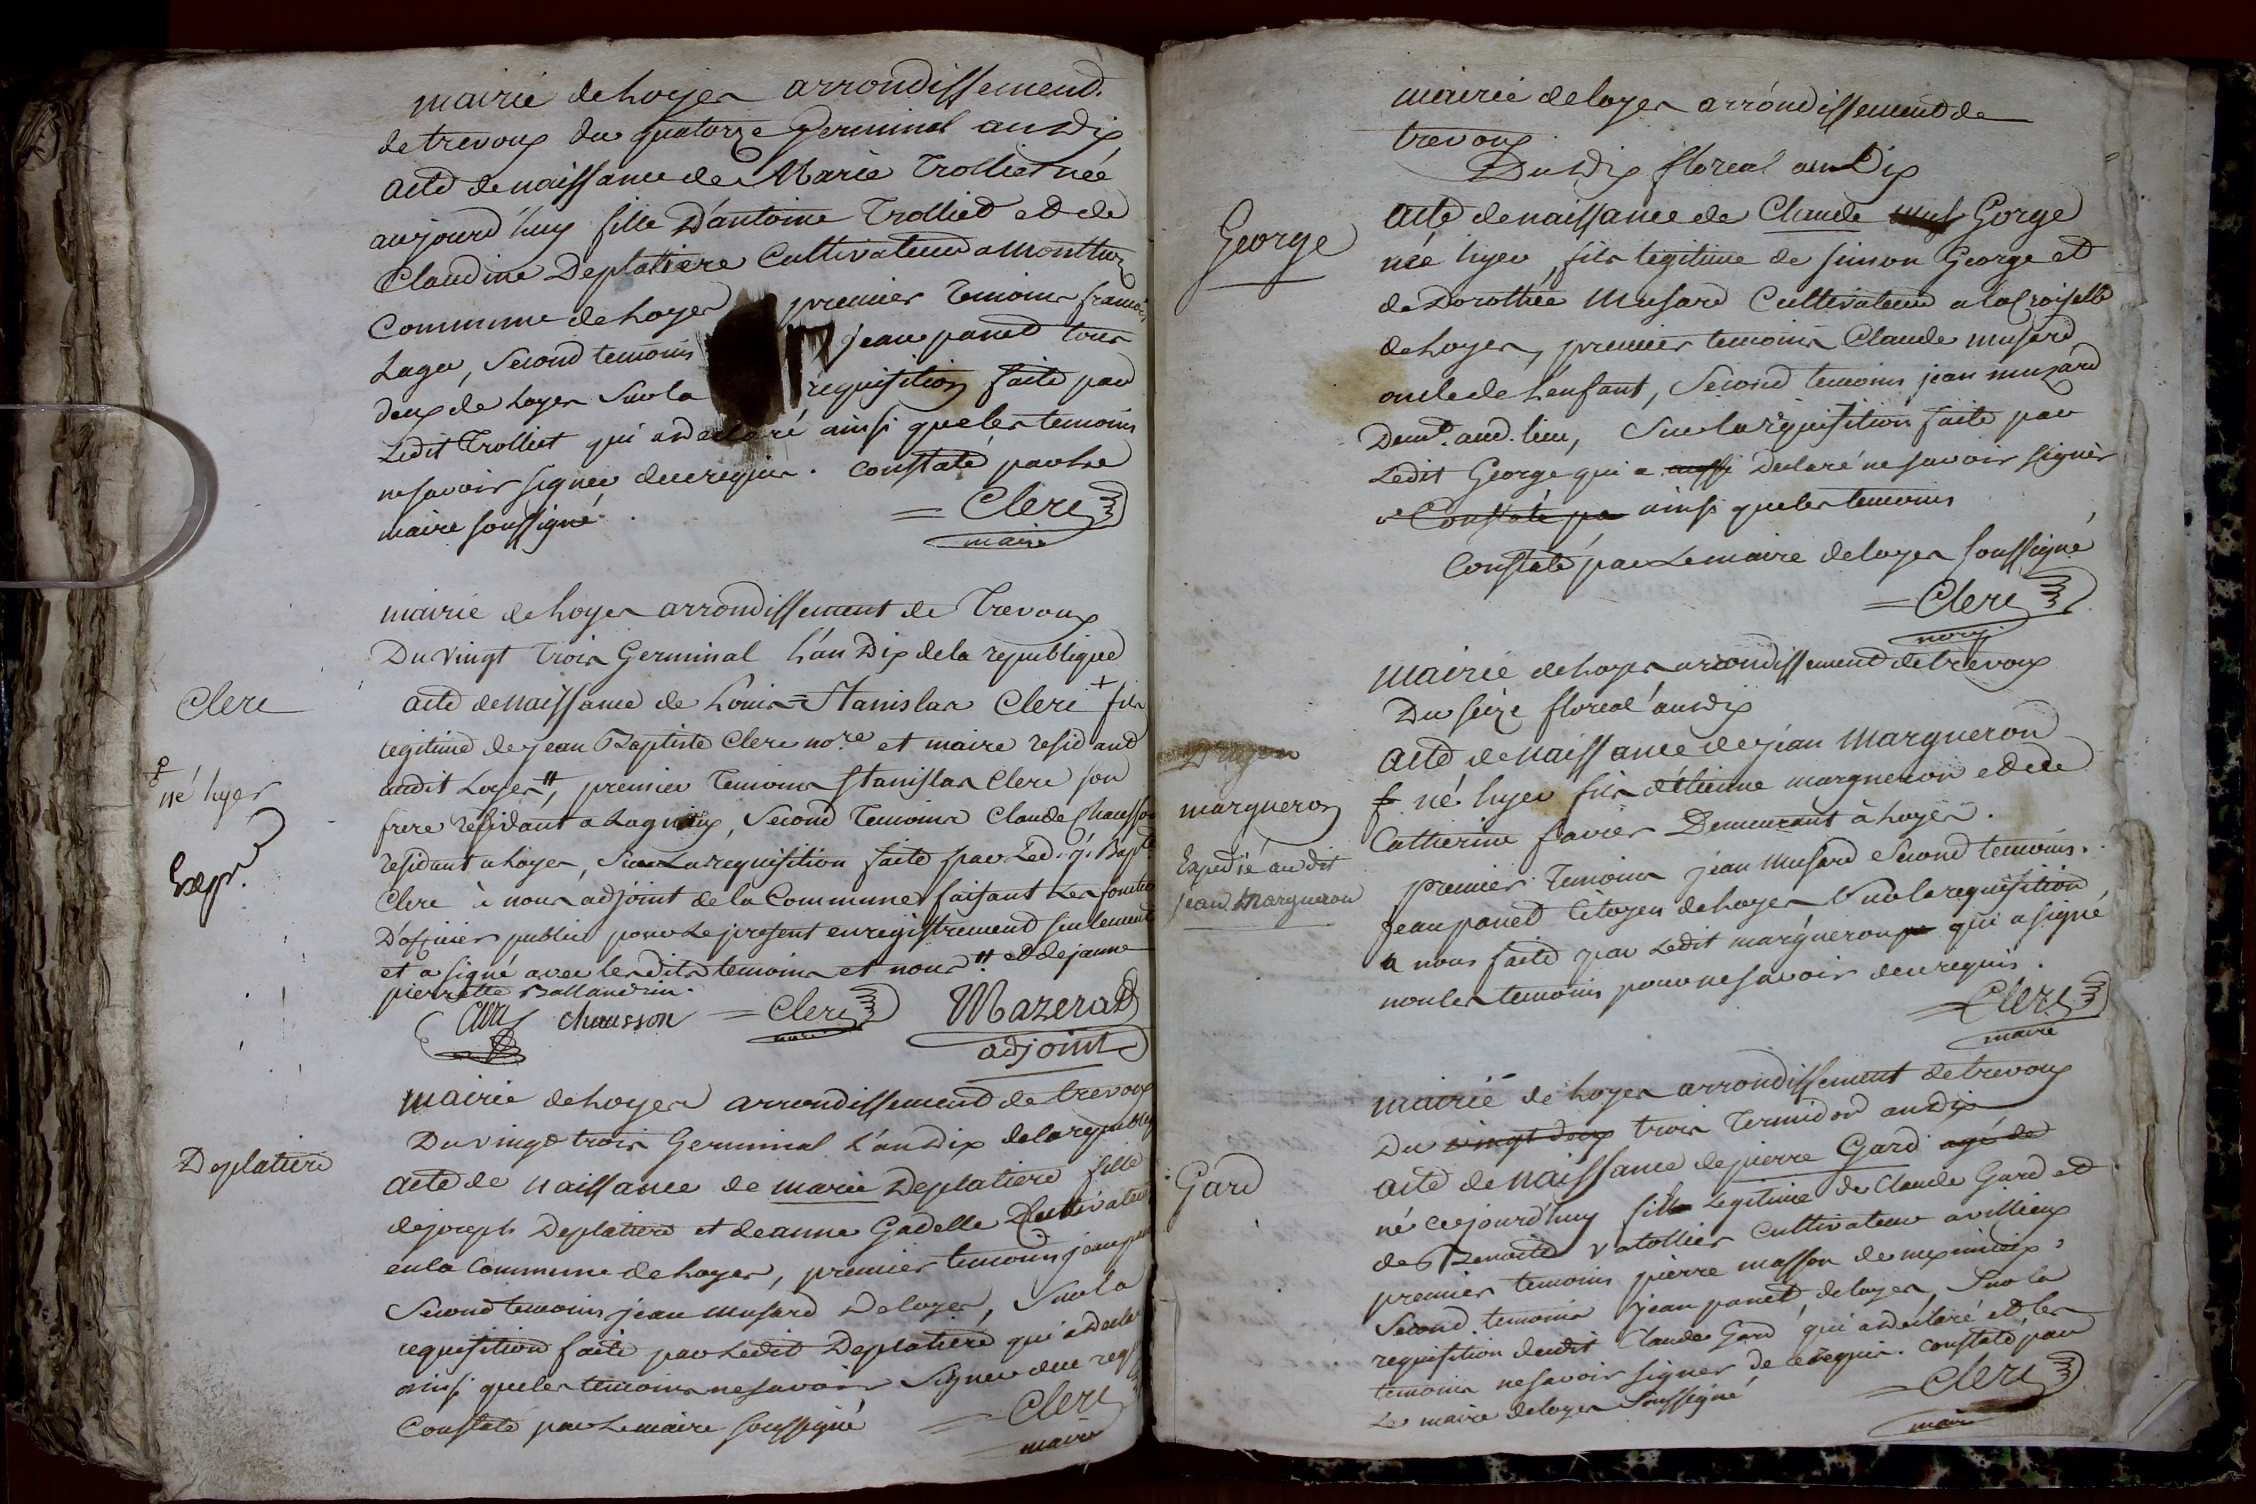 mairie de Loyes arrondissement
de trevoux du quatorze Germinal an dix
acte de naissance de Marie Trolliet née
aujourd'huy fille D'antoine Trolliet et de
Claudine Deplatiere Cultivateur a
Commune de Loyes premier temoins francois
Lager, Second temoins jean panet tous
deux de Loyes Sur la requisition faite par
Ledit Trolliet qui a declaré ainsi que les temoins
ne savoir signer de ce requis. Constaté par Le
maire soussigné
= Clerc
maire
Clerc
né hyer
Expé.
mairie de Loyes arrondissement de Trevoux
Du vingt trois Germinal L'an Dix de la republique
acte de naissance de Louis=Stanislas Clerc + fils
legitime de jean Baptiste Clerc nore et maire residant
audit Loyes #, premier Temoins Stanislas Clerc son
frere residant a Lagnieux, Second Temoins Claude Chausson
residant a Loyes, Sur La requisition faite par Led. j. Bapte
Clerc à nous adjoint de la Commune faisant Les fonctions
D'officier public pour Le present enregistrement seulement
et a signé avec lesdits temoins et nous # et de jeanne
pierrette Ballandrin.
Clerc chausson = Clerc Mazerat
maire adjoint
Deplatiere
mairie de Loyes arrondissement de trevoux
Du vingt trois Germinal L'an Dix de la republiq
acte de naissance de marie Deplatiere fille
de joseph Deplatiere et de anne Gadelle Cultivateur
en la Commune de Loyes, premier temoins jean panet
Second temoins jean musard De loyes, Sur la
requisition faite par Ledit Deplatiere qui a declaré
ainsi que les temoins ne savoir signer de ce req
Constaté par Le maire soussigné
= Clerc
maire
mairie de loyes arrondissement de
trevoux
Du Dix floreal an Dix
George
acte de naissance de Claude Gorge
née hyer, fils legitime de simon George et
de Dorothée Musard Cultivateur a la Croisette
de Loyes, premier temoins Claude musard
oncle de L'enfant, Second temoins jean muzard
Demt. aud. lieu, Sur la requisition faite par
Ledit George qui a aussi Declaré ne savoir signer
Constaté pa ainsi que les temoins
Constaté par Le maire de loyes soussigné
= Clerc
mairie de Loyes arrondissement de trevoux
Du seize floreal an dix
margueron
Expedié au dit
jean Margueron
acte de naissance de jean Margueron
f né hyer fils d'etienne margueron et de
Catherine favier Demeurant à Loyes.
premier Temoins jean Musard Second temoins
jean panet Citoyen de Loyes Sur la requisition
a nous faite par Ledit margueron qui a signé
non les temoins pour ne savoir de ce requis.
= Clerc
maire
mairie de Loyes arrondissement de trevoux
Du vingt deux trois Termidor an dix
Gard
acte de naissance de pierre Gard agé de
né cejourd'huy fils Legitime de Claude Gard et
de Benoite Vatollier Cultivateur a villieux
premier temoins pierre masson de meximieux,
Second temoins jean panet, de loyes, Sur la
requisition dudit Claude Gard qui a declaré et les
temoins ne savoir signer de ce requis. Constaté par
Le maire de loyes Soussigné
= Clerc
maire